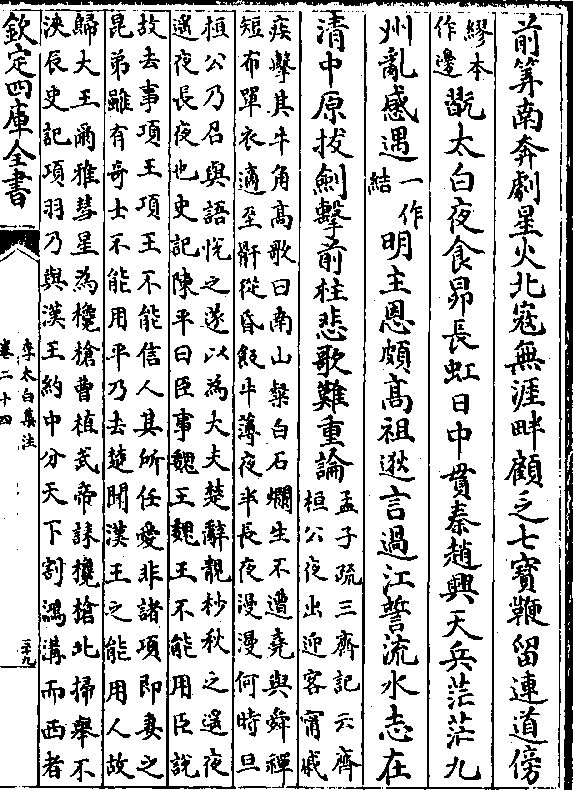 前筭南奔劇星火北寇無涯畔顧乏七寶鞭留連道傍
繆本作邊翫太白夜食昴長虹日中貫秦趙興天兵茫茫九
州亂感遇一作結明主恩頗髙祖逖言過江誓流水志在
清中原拔劍擊前柱悲歌難重論孟子疏三齊記云齊桓公夜出迎客甯戚
疾擊其牛角髙歌曰南山粲白石爛生不遭堯與舜禪
短布單衣適至骭從昏飯牛薄夜半長夜漫漫何時旦
桓公乃召與語恱之遂以為大夫楚辭靚杪秋之遥夜
遥夜長夜也史記陳平曰臣事魏王魏王不能用臣説
故去事項王項王不能信人其所任愛非諸項即妻之
昆弟雖有奇士不能用平乃去楚聞漢王之能用人故
歸大王爾雅彗星為欃槍曹植武帝誄欃槍北掃舉不
浹辰史記項羽乃與漢王約中分天下割鴻溝而西者
欽定四庫全書
李太白集注
卷二十四
二十九